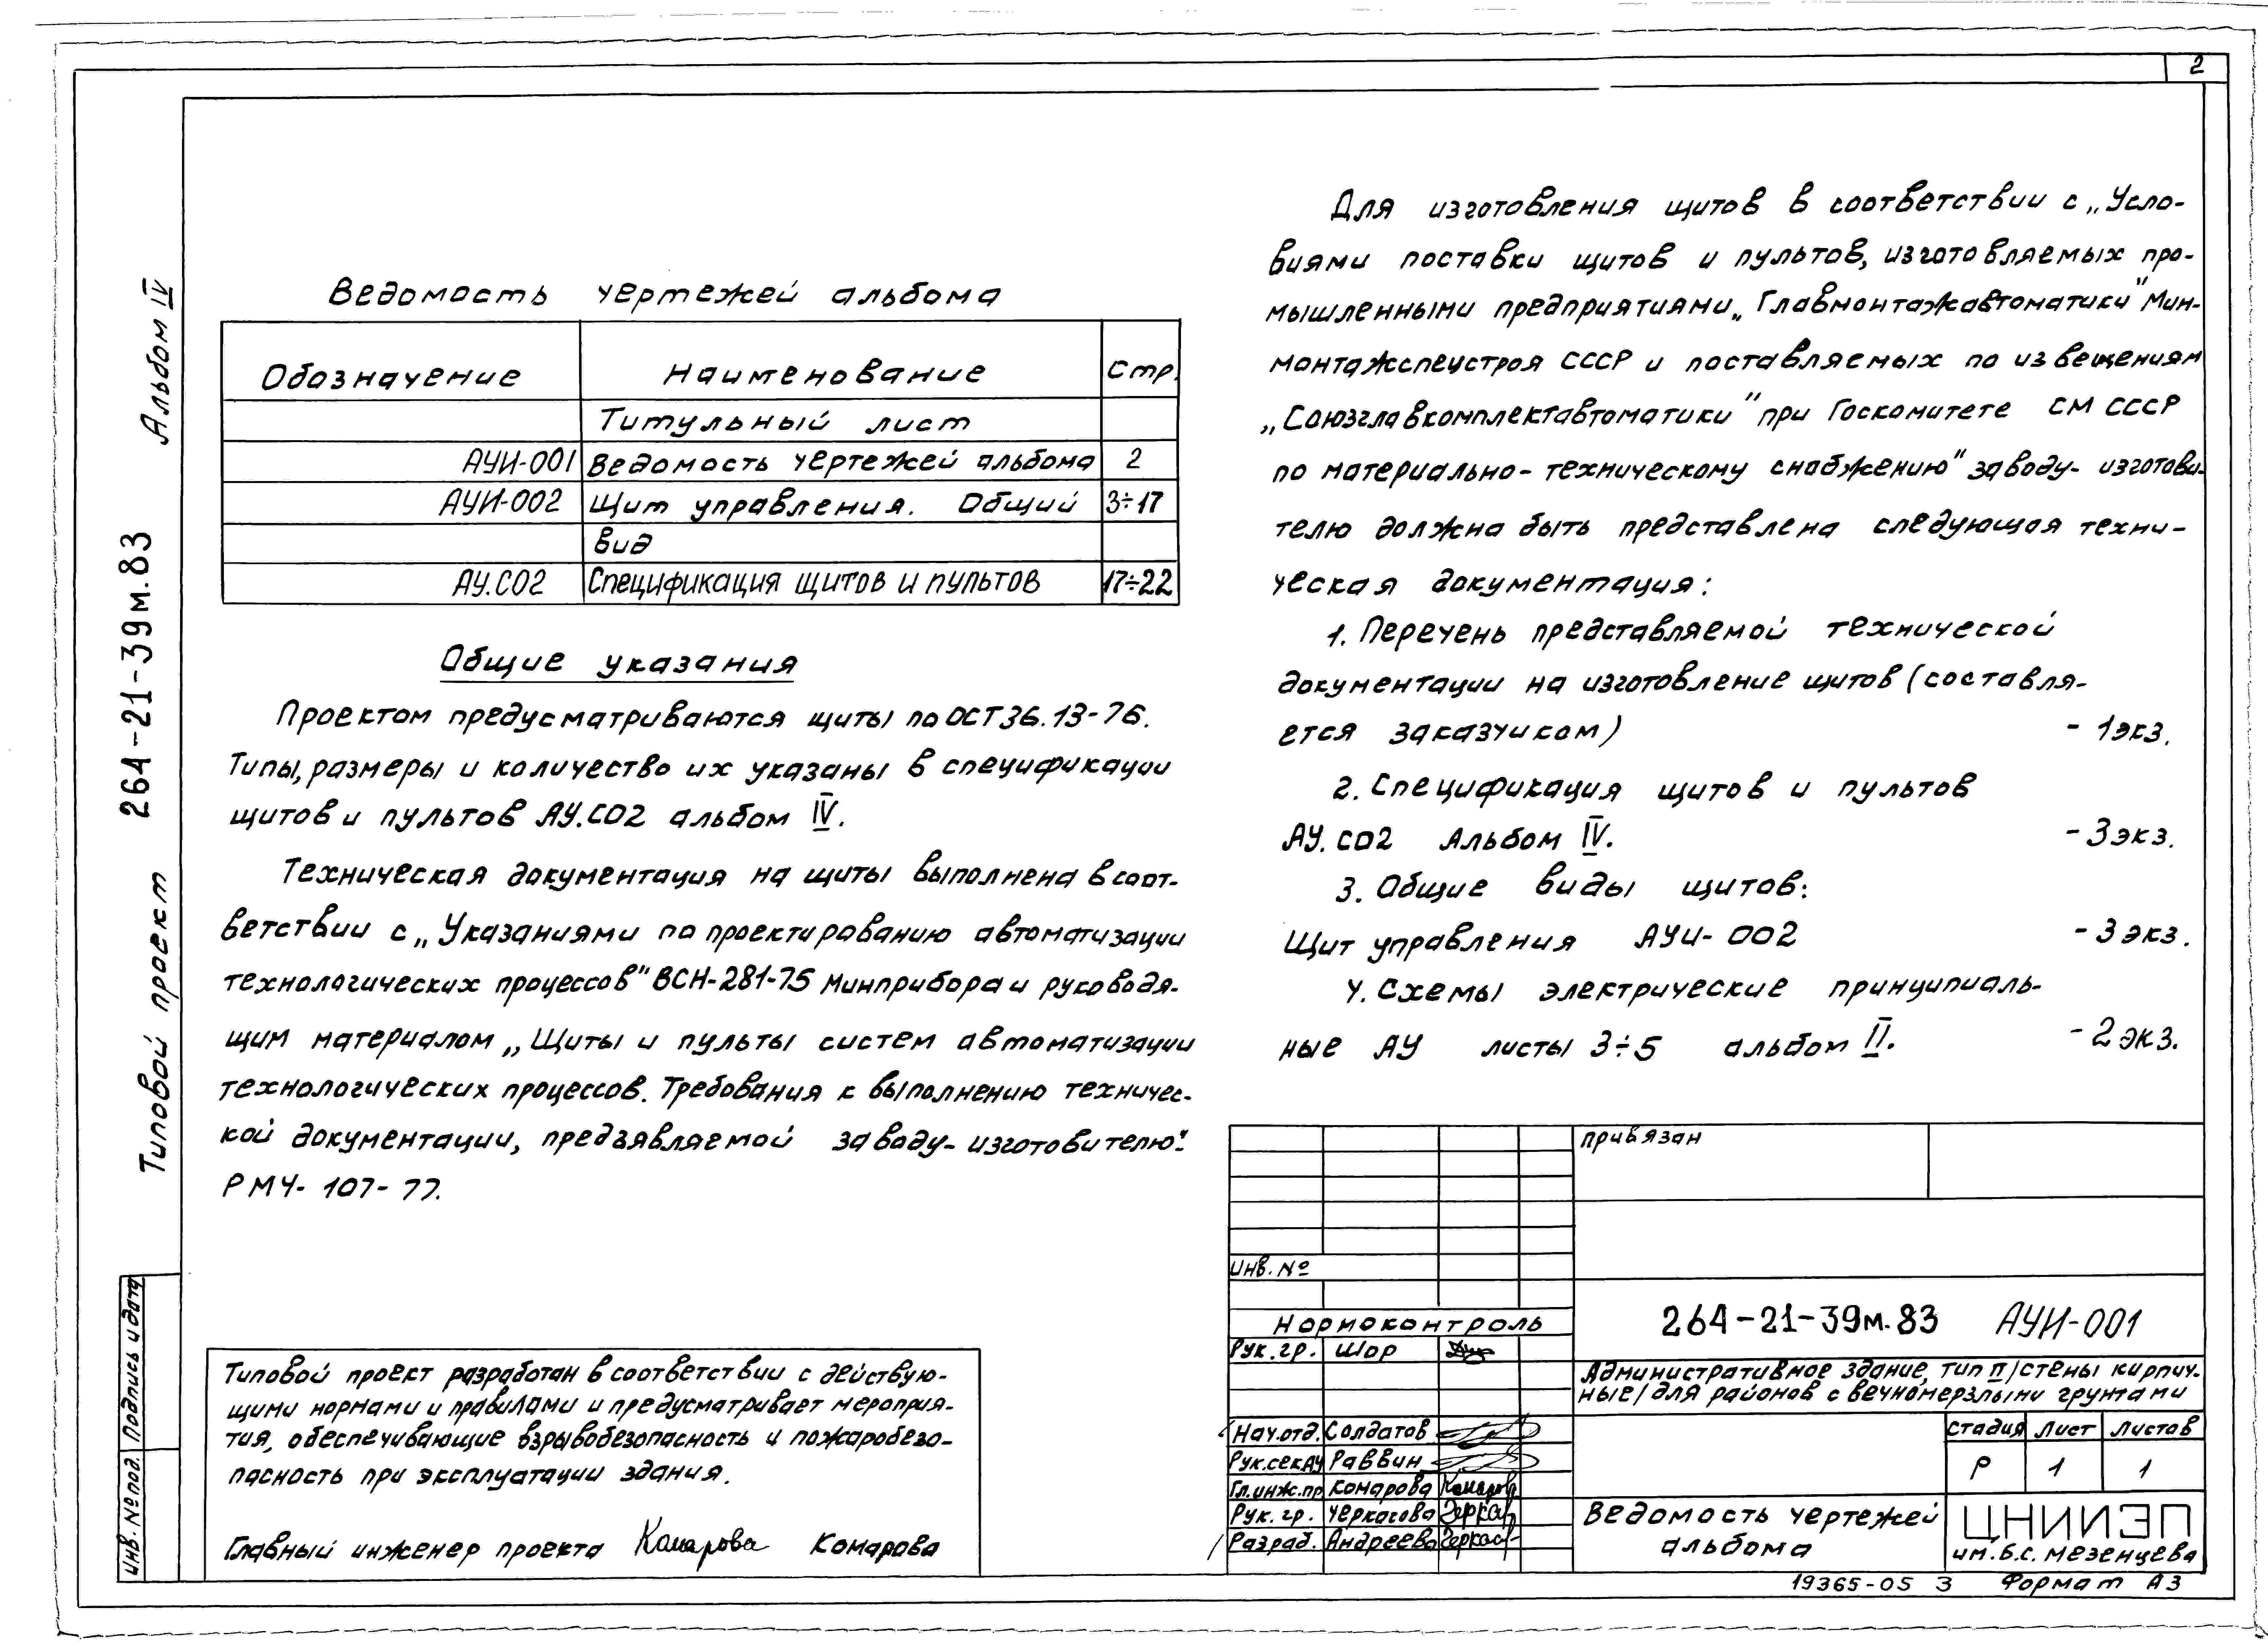 2
Альбом IV
Типовой проект 264-21-39м.83
Инв. № под. Подпись и дата
Ведомость чертежей альбома
Обозначение Наименование Стр.
Титульный лист
АУИ-001 Ведомость чертежей альбома 2
АУИ-002 Щит управления. Общий 3÷17
вид
АУ.СО2 Спецификация щитов и пультов 17÷22
Общие указания
Проектом предусматриваются щиты по ОСТ 36.13-76.
Типы, размеры и количество их указаны в спецификации
щитов и пультов АУ.СО2 альбом IV.
Техническая документация на щиты выполнена в соот-
ветствии с „Указаниями по проектированию автоматизации
технологических процессов" ВСН-281-75 Минприбора и руководя-
щим материалом „Щиты и пульты систем автоматизации
технологических процессов. Требования к выполнению техничес-
кой документации, предъявляемой заводу-изготовителю".
РМ4-107-77.
Типовой проект разработан в соответствии с действую-
щими нормами и правилами и предусматривает мероприя-
тия, обеспечивающие взрывобезопасность и пожаробезо-
пасность при эксплуатации здания.
Главный инженер проекта Комарова Комарова
Для изготовления щитов в соответствии с „Усло-
виями поставки щитов и пультов, изготовляемых про-
мышленными предприятиями „Главмонтажавтоматики" Мин-
монтажспецстроя СССР и поставляемых по извещениям
„Союзглавкомплектавтоматики" при Госкомитете СМ СССР
по материально-техническому снабжению" заводу-изготови-
телю должна быть представлена следующая техни-
ческая документация:
1. Перечень представляемой технической
документации на изготовление щитов (составля-
ется заказчиком) - 1 экз.
2. Спецификация щитов и пультов
АУ.СО2 Альбом IV. - 3 экз.
3. Общие виды щитов:
Щит управления АУИ-002 - 3 экз.
4. Схемы электрические принципиаль-
ные АУ листы 3÷5 альбом II. - 2 экз.
привязан
Инв. №
Нормоконтроль
Рук. гр. Шор
264-21-39м.83 АУИ-001
Административное здание, тип II /стены кирпич-
ные/ для районов с вечномерзлыми грунтами
Нач. отд. Солдатов
Рук. сек АУ Раввин
Гл. инж. пр Комарова Комаров
Рук. гр. Черкасова
Разраб. Андреева
Стадия Лист Листов
Р 1 1
Ведомость чертежей
альбома
ЦНИИЭП
им. Б.С. Мезенцева
19365-05 3 Формат А3